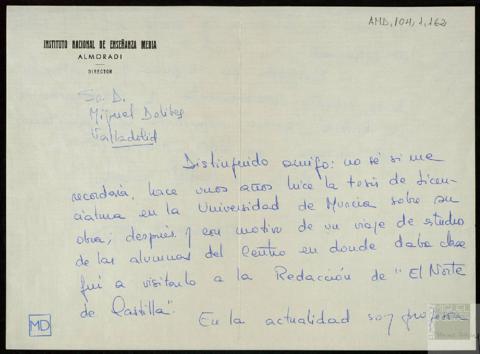 AMD, 104, 1, 162
INSTITUTO NACIONAL DE ENSEÑANZA MEDIA
ALMORADI
DIRECTOR
Sr. D.
Miguel Delibes
Valladolid
Distinguido amigo: no sé si me
recordará, hace unos años hice la tesis de Licen-
ciatura en la Universidad de Murcia sobre su
obra; después y con motivo de un viaje de estudio
de las alumnas del Centro en donde daba clase
fuí a visitarlo a la Redacción de "El Norte
de Castilla".
En la actualidad soy profesora
MD